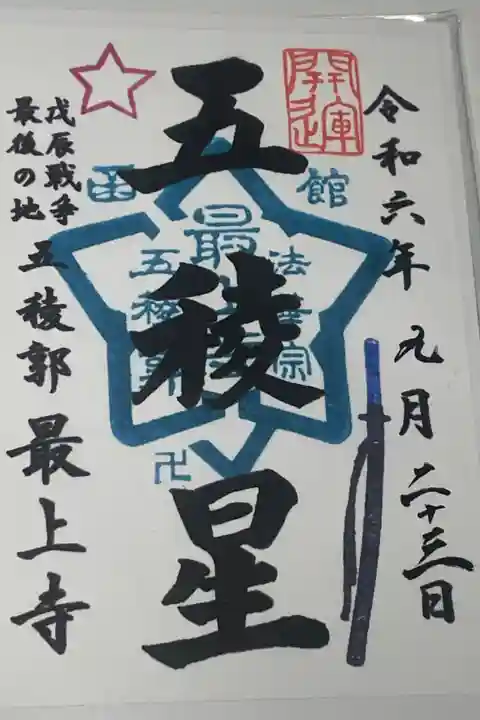 開運
令和六年 九月 二十三日
五稜星
函館
法華宗
最上寺
五稜郭
卍
戊辰戦争
最後の地
五稜郭 最上寺